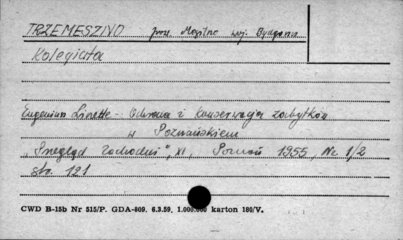 TRZEMESZNO pow. Mogilno woj. Bydgoszcz
Kolegiata
Eugeniusz Linette - Ochrona i konserwacja zabytków
w Poznańskiem
"Przegląd Zachodni", XI, Poznań 1955, Nr 1/2
str. 121
CWD B-15b Nr 515/P. GDA-809. 6.3.59, 1.000.000 karton 180/V.